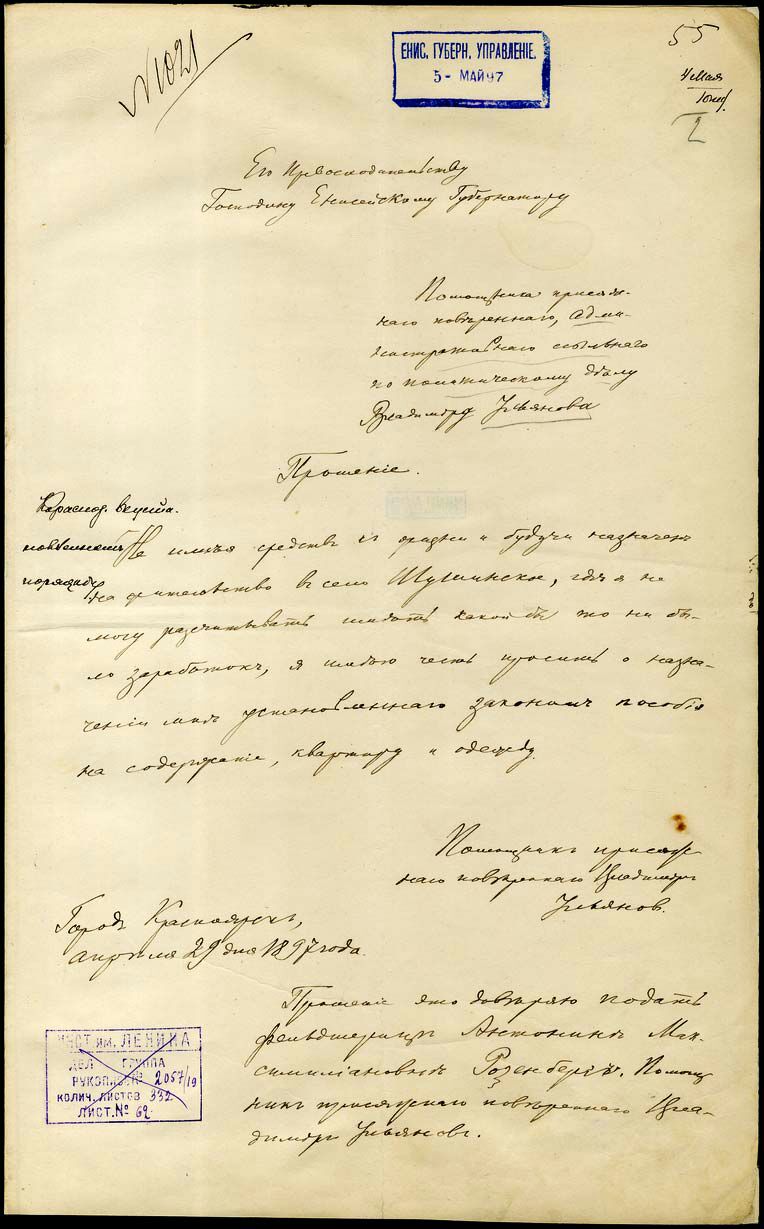 № 1021
ЕНИС. ГУБЕРН. УПРАВЛЕНІЕ.
5 - МАЙ 97
55
4 Мая
2
Его Превосходительству
Господину Енисейскому Губернатору
Помощника присяж-
наго повѣреннаго, адми-
нистративнаго ссыльнаго
по политическому дѣлу
Владимира Ульянова
Прошеніе.
Не имѣя средствъ къ жизни и будучи назначен
на жительство въ село Шушинское, гдѣ я не
могу разсчитывать имѣть какой бы то ни бы-
ло заработокъ, я имѣю честь просить о назна-
ченіи мнѣ установленнаго закономъ пособія
на содержаніе, квартиру и одежду.
Помощникъ присяж-
наго повѣреннаго Владимиръ
Ульянов.
Городъ Красноярскъ,
апрѣля 29 дня 1897 года.
Прошеніе это довѣряю подать
фельдшерицѣ Антонинѣ Мак-
симиліановнѣ Розенбергъ. Помощ-
никъ присяжнаго повѣреннаго Вла-
димиръ Ульяновъ.
ИНСТ им. ЛЕНИНА
ДЕЛ ГРУППА
РУКОПИС № 2057/19
КОЛИЧ. ЛИСТОВ 332
ЛИСТ. № 62